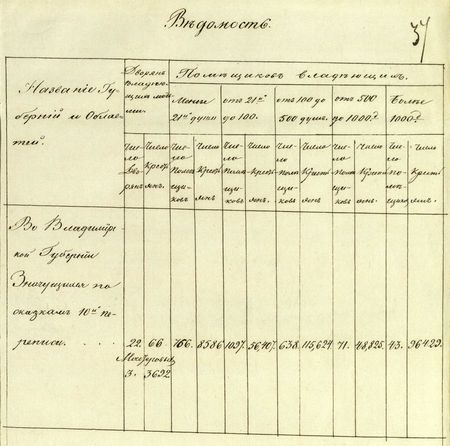 Вѣдомость.
37
Названіе Гу-
берній и Облас-
тей.
Дворянъ
владѣю-
щихъ
Помѣщиковъ владѣющихъ.
Менѣе
21й души
отъ 21й
до 100.
отъ 100 до
500 душъ.
отъ 500
до 1000.
Болѣе
1000.
Чис-
ло
Дво-
рянъ
Число
Крест-
янъ.
Чис-
ло
Помѣ-
щи-
ковъ
Число
Крест-
янъ
Чис-
ло
Помѣ-
щи-
ковъ
Число
Крест-
янъ.
Чис-
ло
Помѣ-
щи-
ковъ
Число
Крест-
янъ.
Чис-
ло
Помѣ-
щи-
ковъ
Число
Крест-
янъ.
Чис-
ло
По-
мѣ-
щиковъ
Число
Крест-
янъ.
Во Владимір-
кой Губерніи
Значущихся по
сказкамъ 10й пе-
ревиси. . . . 22. 66 766. 8586 1097. 56,407. 638. 115,624. 71. 48,825. 43. 96429.
3. 3692